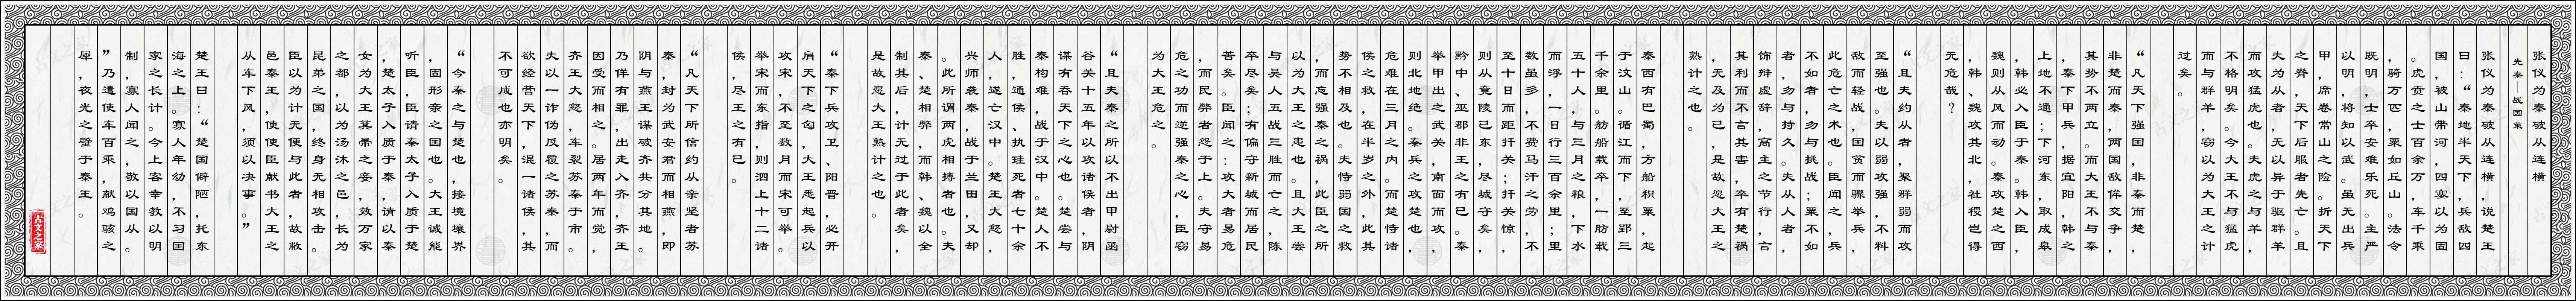 张仪为秦破从连横
先秦—战国策
张仪为秦破从连横，说楚王
曰：“秦地半天下，兵敌四
国，被山带河，四塞以为固
。虎贲之士百余万，车千乘
，骑万匹，粟如丘山。法令
既明，士卒安难乐死。主严
以明，将知以武。虽无出兵
甲，席卷常山之险。折天下
之脊，天下后服者先亡。且
夫为从者，无以异于驱群羊
而攻猛虎也。夫虎之与羊，
不格明矣。今大王不与猛虎
而与群羊，窃以为大王之计
过矣。
“凡天下强国，非秦而楚，
非楚而秦，两国敌侔交争，
其势不两立。而大王不与秦
，秦下甲兵，据宜阳，韩之
上地不通；下河东，取成皋
，韩必入臣于秦。韩入臣，
魏则从风而动。秦攻楚之西
，韩、魏攻其北，社稷岂得
无危哉？
“且夫约从者，聚群弱而攻
至强也。夫以弱攻强，不料
敌而轻战，国贫而骤举兵，
此危亡之术也。臣闻之，兵
不如者，勿与挑战；粟不如
者，勿与持久。夫从人者，
饰辩虚辞，高主之节行，言
其利而不言其害，卒有楚祸
，无及为已，是故愿大王之
熟计之也。
秦西有巴蜀，方船积粟，起
于汶山。循江而下，至郢三
千余里。舫船载卒，一舫载
五十人，与三月之粮，下水
而浮，一日行三百余里；里
数虽多，不费马汗之劳，不
至十日而距扞关；扞关惊，
则从竟陵已东，尽城守矣，
黔中、巫郡非王之有已。秦
举甲出之武关，南面而攻，
则北地绝。秦兵之攻楚也，
危难在三月之内。而楚恃诸
侯之救，在半岁之外，此其
势不相及也。夫恃弱国之救
，而忘强秦之祸，此臣之所
以为大王之患也。且大王尝
与吴人五战三胜而亡之，陈
卒尽矣；有偏守新城而居民
苦矣。臣闻之：攻大者易危
，而民弊者怨于上。夫守易
危之功而逆强秦之心，臣窃
为大王危之。
“且夫秦之所以不出甲尉函
谷关十五年以攻诸侯者，阴
谋有吞天下之心也。楚尝与
秦构难，战于汉中。楚人不
胜，通侯、执珪死者七十余
人，遂亡汉中。楚王大怒，
兴师袭秦，战于兰田，又却
。此所谓两虎相搏者也。夫
秦、楚相弊，而韩、魏以全
制其后，计无过于此者矣，
是故愿大王熟计之也。
“秦下兵攻卫、阳晋，必开
肩天下之匈，大王悉起兵以
攻宋，不至数月而宋可举。
举宋而东指，则泗上十二诸
侯，尽王之有已。
“凡天下所信约从亲坚者苏
秦，封为武安君而相燕，即
阴与燕王谋破齐共分其地。
乃佯有罪，出走入齐，齐王
因受而相之。居两年而觉，
齐王大怒，车裂苏秦于市。
夫以一诈伪反覆之苏秦，而
欲经营天下，混一诸侯，其
不可成也亦明矣。
“今秦之与楚也，接境壤界
，固形亲之国也。大王诚能
听臣，臣请秦太子入质于楚
，楚太子入质于秦，请以秦
女为大王箕帚之妾，效万家
之都，以为汤沐之邑，长为
昆弟之国，终身无相攻击。
臣以为计无便与此者，故敝
邑秦王，使使臣献书大王之
从车下风，须以决事。”
楚王曰：“楚国僻陋，托东
海之上。寡人年幼，不习国
家之长计。今上客幸教以明
制，寡人闻之，敬以国从。
”乃遣使车百乘，献鸡骇之
犀，夜光之璧于秦王。
古文之家